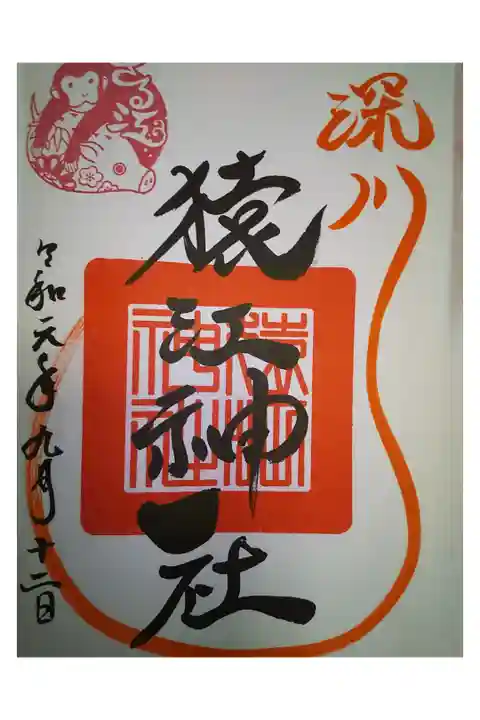 深川
猿江神社
令和元年九月十二日
さる江
猿江
神社